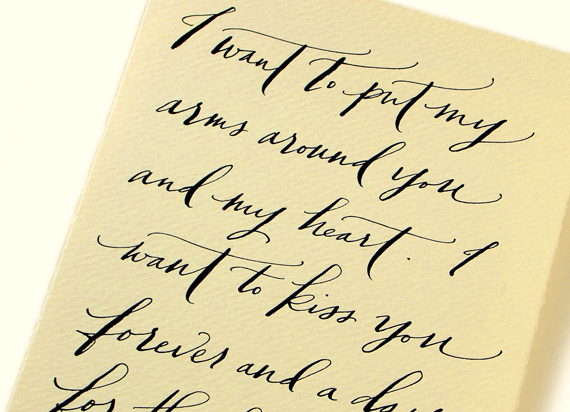 I want to put my
arms around you
and my heart. I
want to kiss you
forever and a day
for